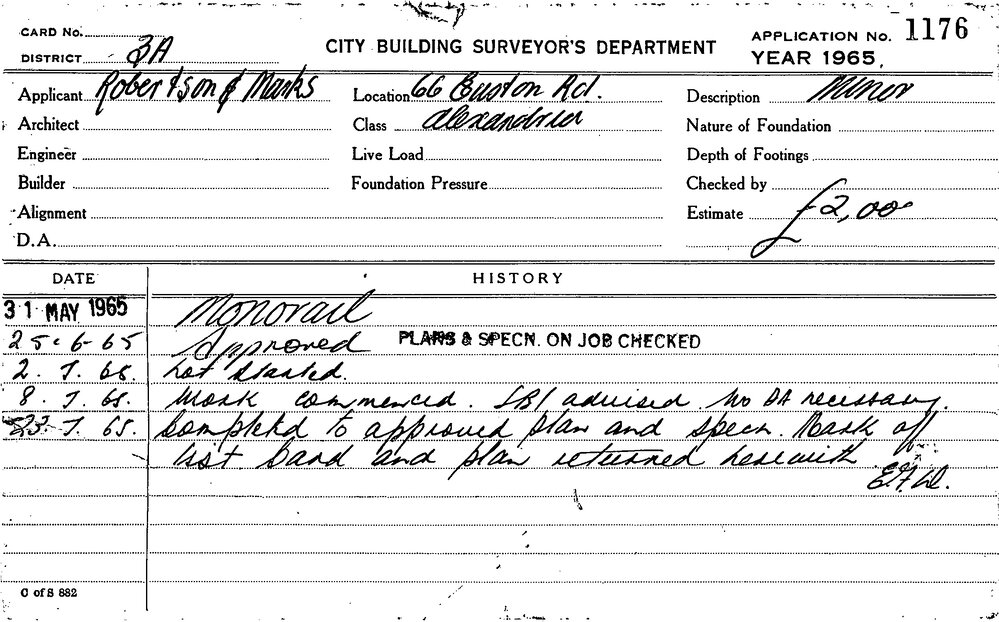 CARD No.
DISTRICT 3A
CITY BUILDING SURVEYOR'S DEPARTMENT
APPLICATION No. 1176
YEAR 1965.
Applicant Robertson & Marks
Location 66 Euston Rd.
Description Minor
Architect
Class Alexandria
Nature of Foundation
Engineer
Live Load
Depth of Footings
Builder
Foundation Pressure
Checked by
Alignment
Estimate £2,00
D.A.
DATE HISTORY
31 MAY 1965 Monorail
25.6-65 Approved PLANS & SPECN. ON JOB CHECKED
2.7.65. Not started.
8.7.65. Work commenced. SBI advised no DA necessary.
23.7.65. Completed to approved plan and specn. Mark off
list. Card and plan returned herewith
C of S 882